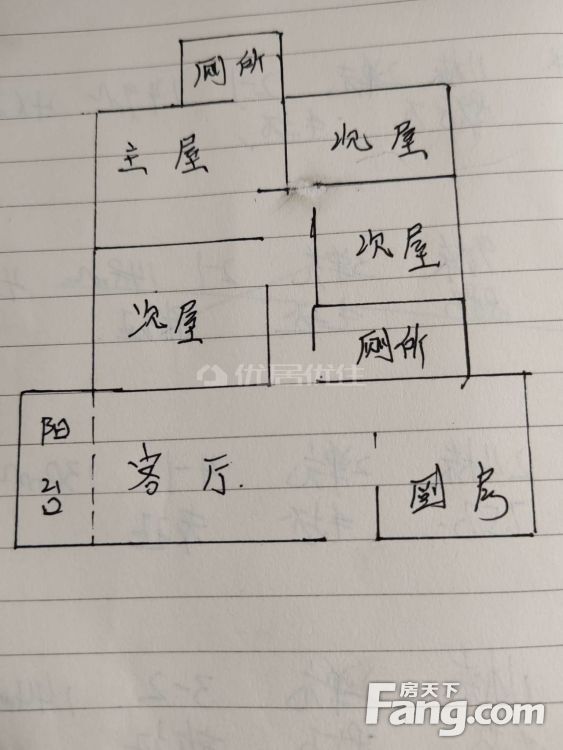 厕所
主屋
次屋
次屋
次屋
厕所
优居优住
阳台
客厅
厨房
房天下
Fang.com